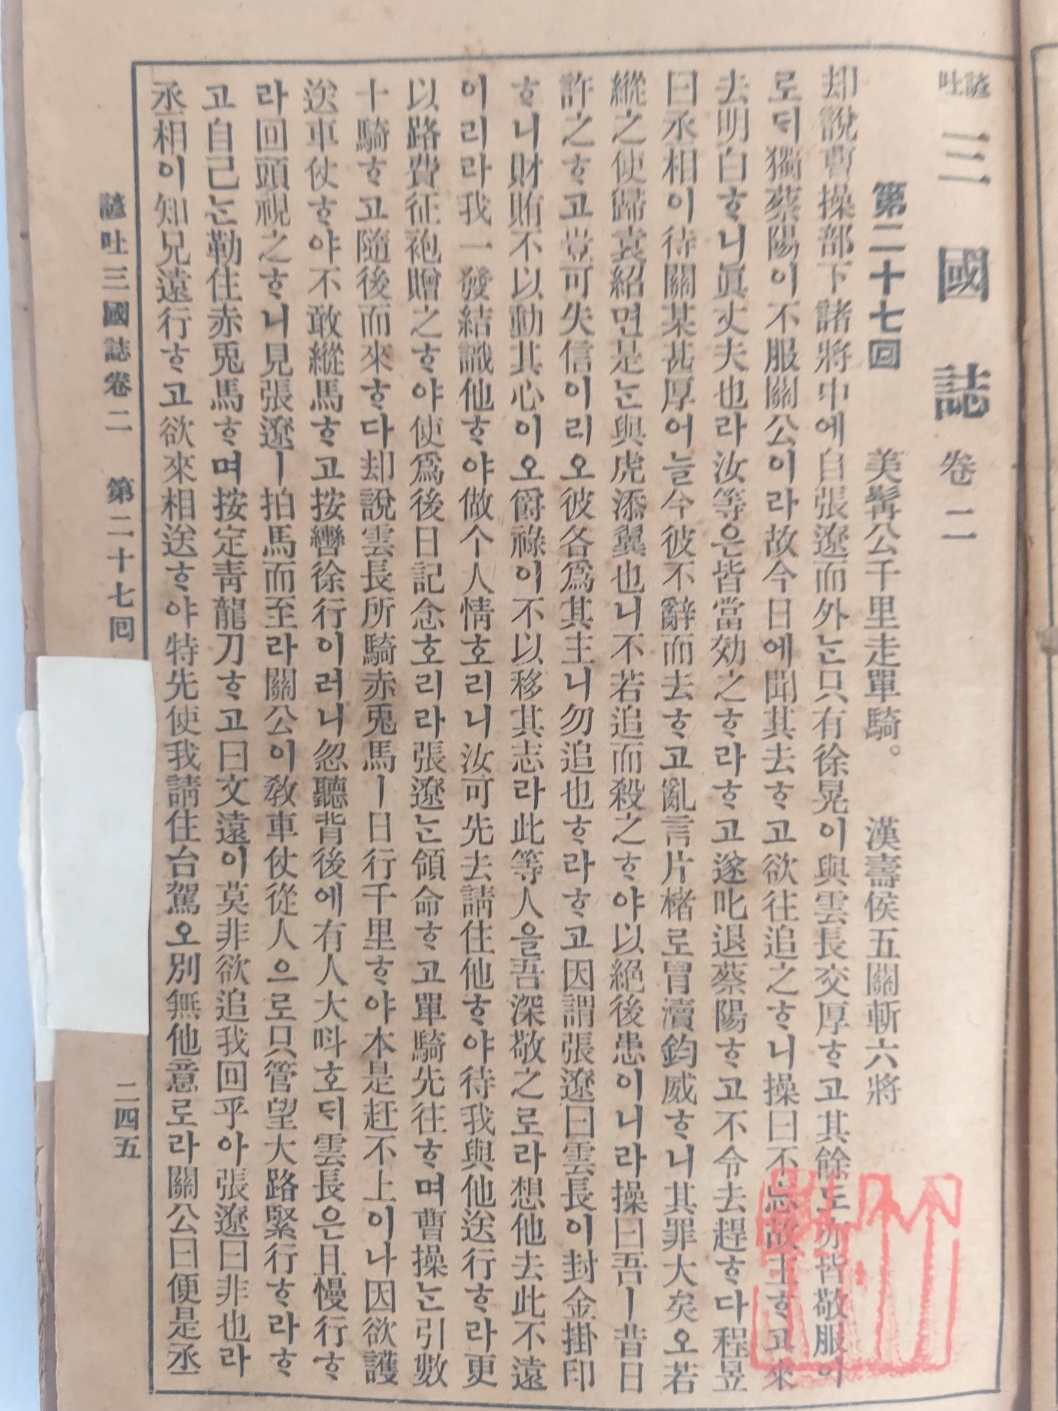 諺吐 三國誌 卷二
第二十七回 美髥公千里走單騎。 漢壽侯五關斬六將
却說曹操部下諸將中에自張遼而外ᄂᆞᆫ只有徐晃이與雲長交厚ᄒᆞ고其餘도亦皆敬服이
로ᄃᆡ獨蔡陽이不服關公이라故今日에聞其去ᄒᆞ고欲往追之ᄒᆞ니操曰不忘故主ᄒᆞ고來
去明白ᄒᆞ니眞丈夫也라汝等은皆當効之ᄒᆞ라ᄒᆞ고遂叱退蔡陽ᄒᆞ고不令去趕ᄒᆞ다程昱
曰丞相이待關某甚厚어늘今彼不辭而去ᄒᆞ고亂言片楮로冐瀆鈞威ᄒᆞ니其罪大矣오若
縱之使歸袁紹면是ᄂᆞᆫ與虎添翼也니不若追而殺之ᄒᆞ야以絕後患이니라操曰吾ㅣ昔日
許之ᄒᆞ고豈可失信이리오彼各爲其主니勿追也ᄒᆞ라ᄒᆞ고因謂張遼曰雲長이封金掛印
ᄒᆞ니財賄不以動其心이오爵祿이不以移其志라此等人을吾深敬之로라想他去此不遠
이리라我一發結識他ᄒᆞ야做个人情호리니汝可先去請住他ᄒᆞ야待我與他送行ᄒᆞ라更
以路費征袍贈之ᄒᆞ야使爲後日記念호리라張遼ᄂᆞᆫ領命ᄒᆞ고單騎先往ᄒᆞ며曹操ᄂᆞᆫ引數
十騎ᄒᆞ고隨後而來ᄒᆞ다却說雲長所騎赤兎馬ㅣ日行千里ᄒᆞ야本是赶不上이나因欲護
送車仗ᄒᆞ야不敢縱馬ᄒᆞ고按轡徐行이러니忽聽背後에有人大呌호ᄃᆡ雲長은且慢行ᄒᆞ
라回頭視之ᄒᆞ니見張遼ㅣ拍馬而至라關公이敎車仗從人으로只管望大路緊行ᄒᆞ라ᄒᆞ
고自己ᄂᆞᆫ勒住赤兎馬ᄒᆞ며按定靑龍刀ᄒᆞ고曰文遠이莫非欲追我回乎아張遼曰非也라
丞相이知兄遠行ᄒᆞ고欲來相送ᄒᆞ야特先使我請住台駕오別無他意로라關公曰便是丞
諺吐三國誌卷二 第二十七回 二四五